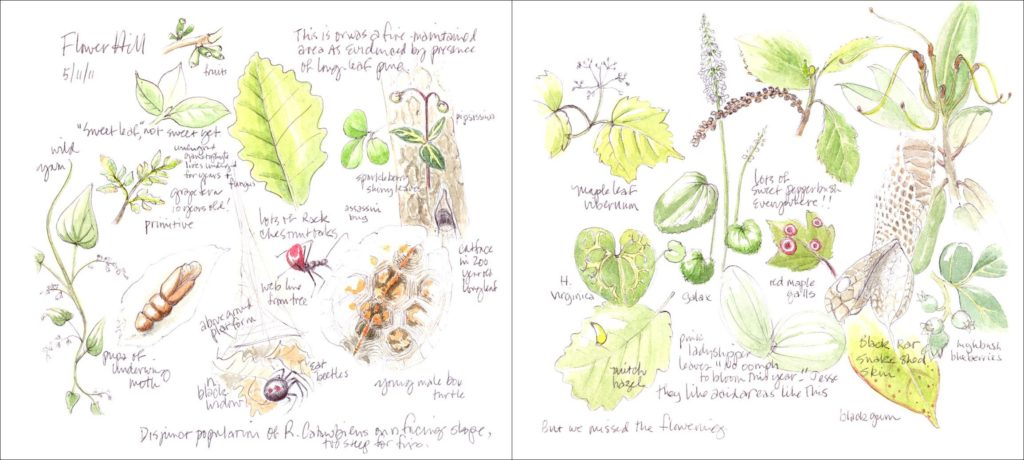 Flower Hill
5/11/11
fruits
This is or was a fire-maintained
area As evidenced by presence
of longleaf pine
"Sweet leaf," not sweet yet
wild
yam
underground
gametophyte
lives underground
for years +
fungus
grape fern
10 years old!
primitive
pipsissewa
sparkleberry
shiny leaves
assassin
bug
lots of Rock
chestnut oaks
catface
in 200
year old
longleaf
web line
from tree
above ground
platform
pupa of
underwing
moth
n.
black
widow
eat
beetles
young male box
turtle
Disjunct population of R. Catawbiens on n facing slope,
too steep for fire.
maple leaf
viburnum
lots of
sweet pepperbush
Everywhere!!
H.
virginica
galax
red maple
galls
witch
hazel
pink
ladyslipper
leaves "No oomph
to bloom this year" - Jesse
They like acid areas like this
black rat
snake shed
skin
highbush
blueberries
black gum
But we missed the flowering